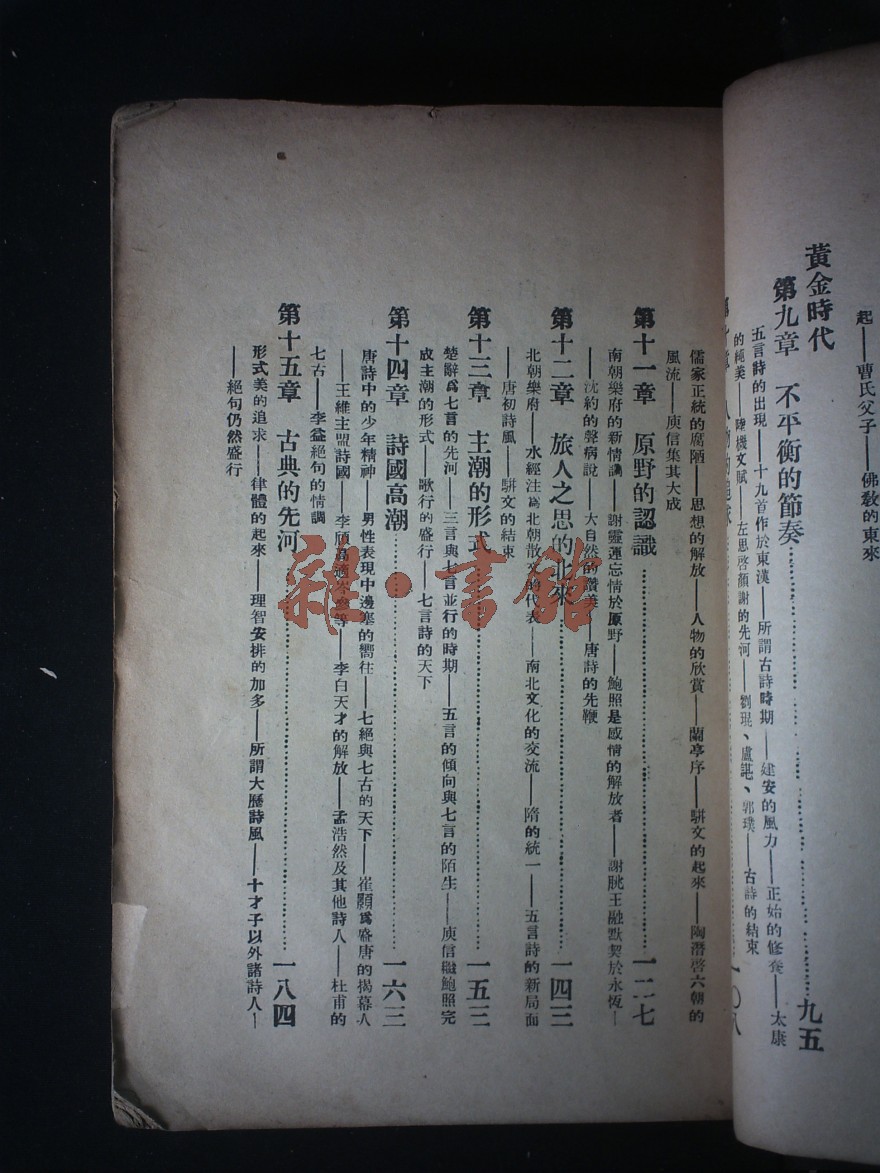 起——曹氏父子——佛敎的東來
黃金時代
第九章　不平衡的節奏……九五
五言詩的出現——十九首作於東漢——所謂古詩時期——建安的風力——正始的修養——太康
的純美——陸機文賦——左思啓顏謝的先河——劉琨、盧諶、郭璞——古詩的結束
一〇八
儒家正統的腐陋——思想的解放——人物的欣賞——蘭亭序——駢文的起來——陶潛啓六朝的
風流——庾信集其大成
第十一章　原野的認識……一二七
南朝樂府的新情調——謝靈運忘情於原野——鮑照是感情的解放者——謝朓王融默契於永恆—
—沈約的聲病說——大自然的讚美——唐詩的先鞭
第十二章　旅人之思的北來……一四三
北朝樂府——水經注爲北朝散文的代表——南北文化的交流——隋的統一——五言詩的新局面
——唐初詩風——駢文的結束
第十三章　主潮的形式……一五三
楚辭爲七言的先河——三言與七言並行的時期——五言的傾向與七言的陌生——庾信繼鮑照完
成主潮的形式——歌行的盛行——七言詩的天下
第十四章　詩國高潮……一六三
唐詩中的少年精神——男性表現中邊塞的嚮往——七絕與七古的天下——崔顥爲盛唐的揭幕人
——王維主盟詩國——李頎高適岑參等——李白天才的解放——孟浩然及其他詩人——杜甫的
七古——李益絕句的情調
第十五章　古典的先河……一八四
形式美的追求——律體的起來——理智安排的加多——所謂大歷詩風——十才子以外諸詩人—
—絕句仍然盛行
雜·書館